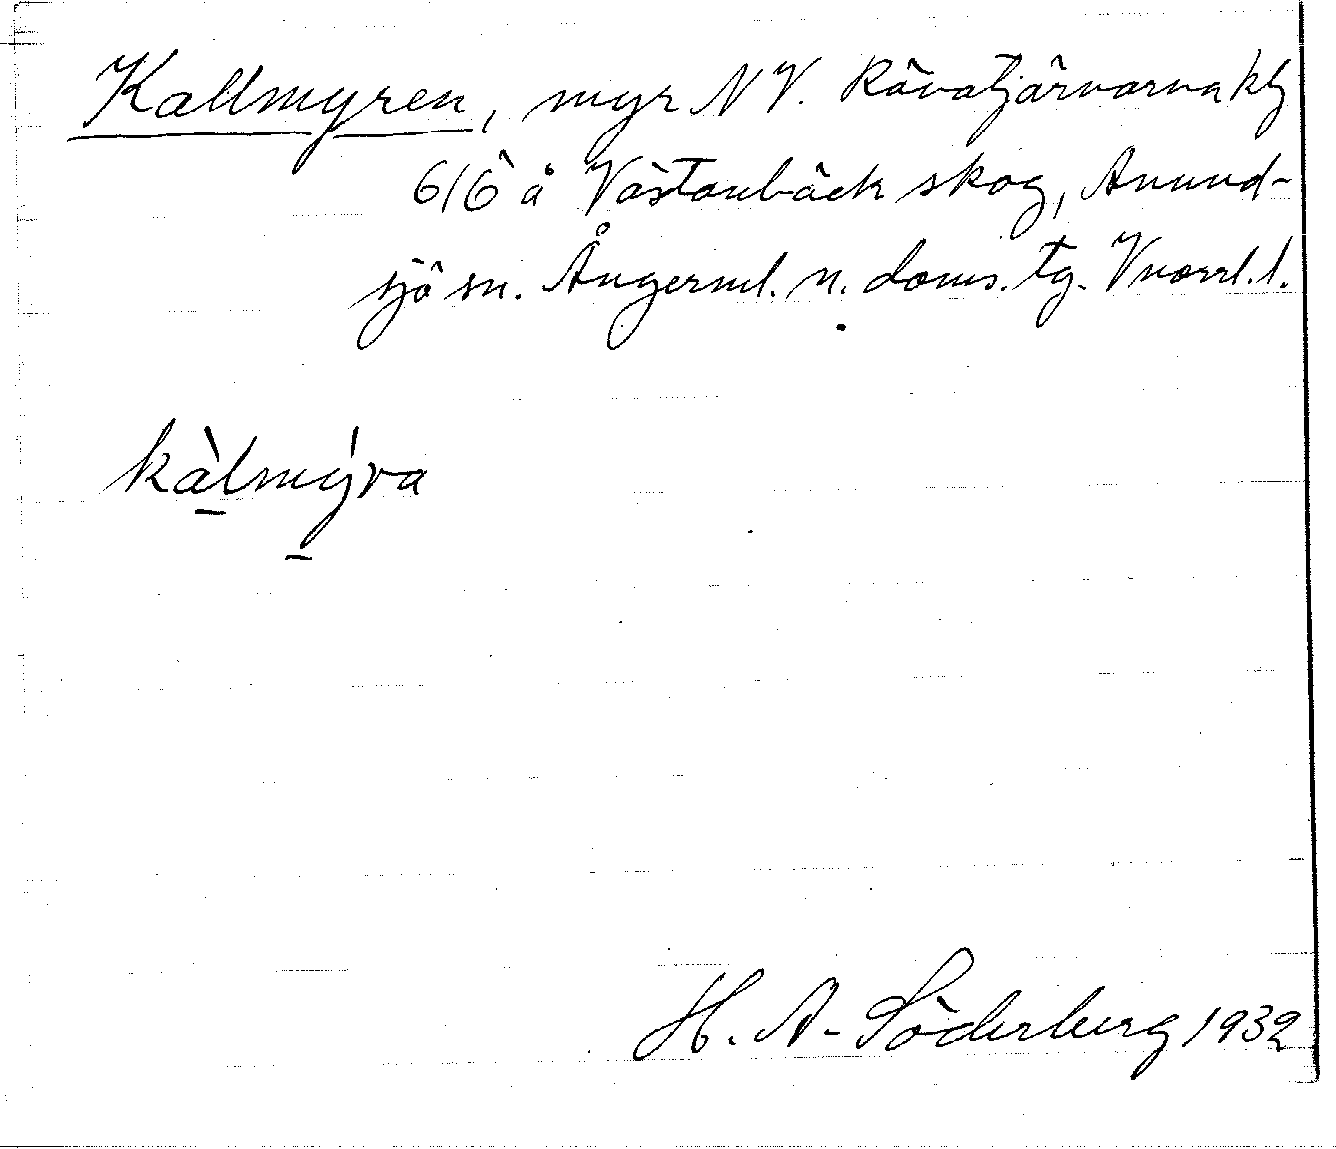 Kallmyren, myr NV. Rävatjärnarna kbl
6/6 å Västanbäck skog, Anund-
sjö sn. Ångerml. n. doms. tg. Vnorrl. l.
kàlmýra
H. A. Söderberg 1932